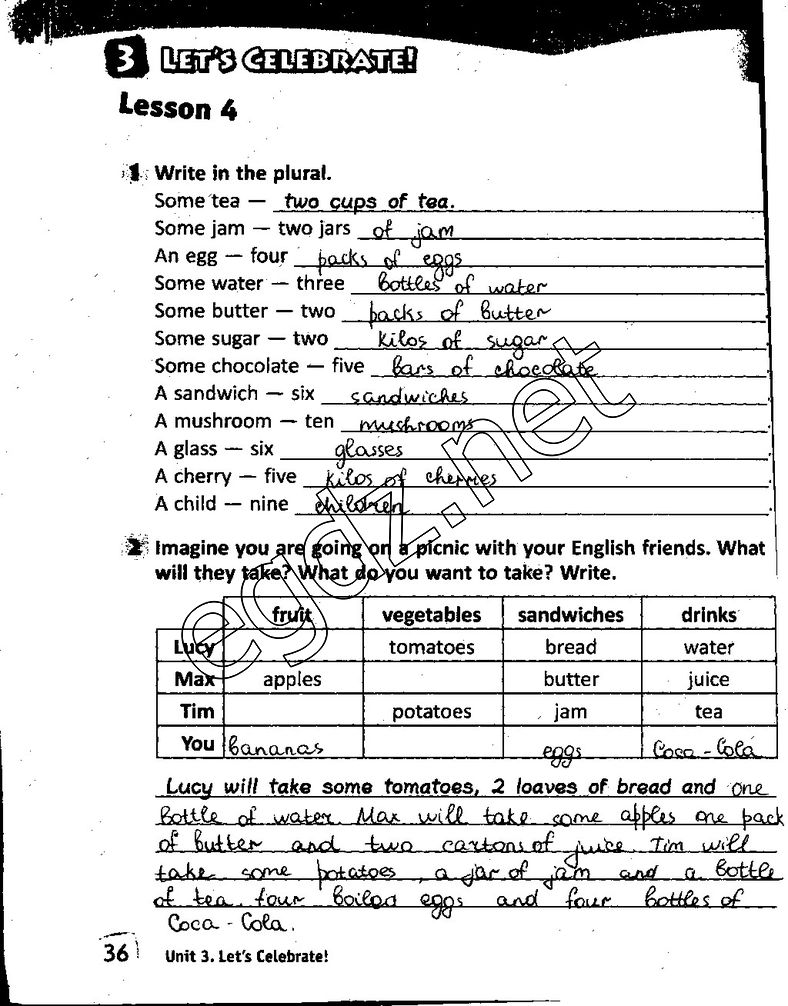 3 LET'S CELEBRATE!
Lesson 4
1 Write in the plural.
Some tea — two cups of tea.
Some jam — two jars of jam
An egg — four packs of eggs
Some water — three bottles of water
Some butter — two packs of butter
Some sugar — two kilos of sugar
Some chocolate — five bars of chocolate
A sandwich — six sandwiches
A mushroom — ten mushrooms
A glass — six glasses
A cherry — five kilos of cherries
A child — nine children
2 Imagine you are going on a picnic with your English friends. What
will they take? What do you want to take? Write.
fruit vegetables sandwiches drinks
Lucy tomatoes bread water
Max apples butter juice
Tim potatoes jam tea
You bananas eggs Coca-Cola
Lucy will take some tomatoes, 2 loaves of bread and one
bottle of water. Max will take some apples one pack
of butter and two cartons of juice. Tim will
take some potatoes, a jar of jam and a bottle
of tea. four boiled eggs and four bottles of
Coca-Cola.
36 Unit 3. Let's Celebrate!
egdz.net